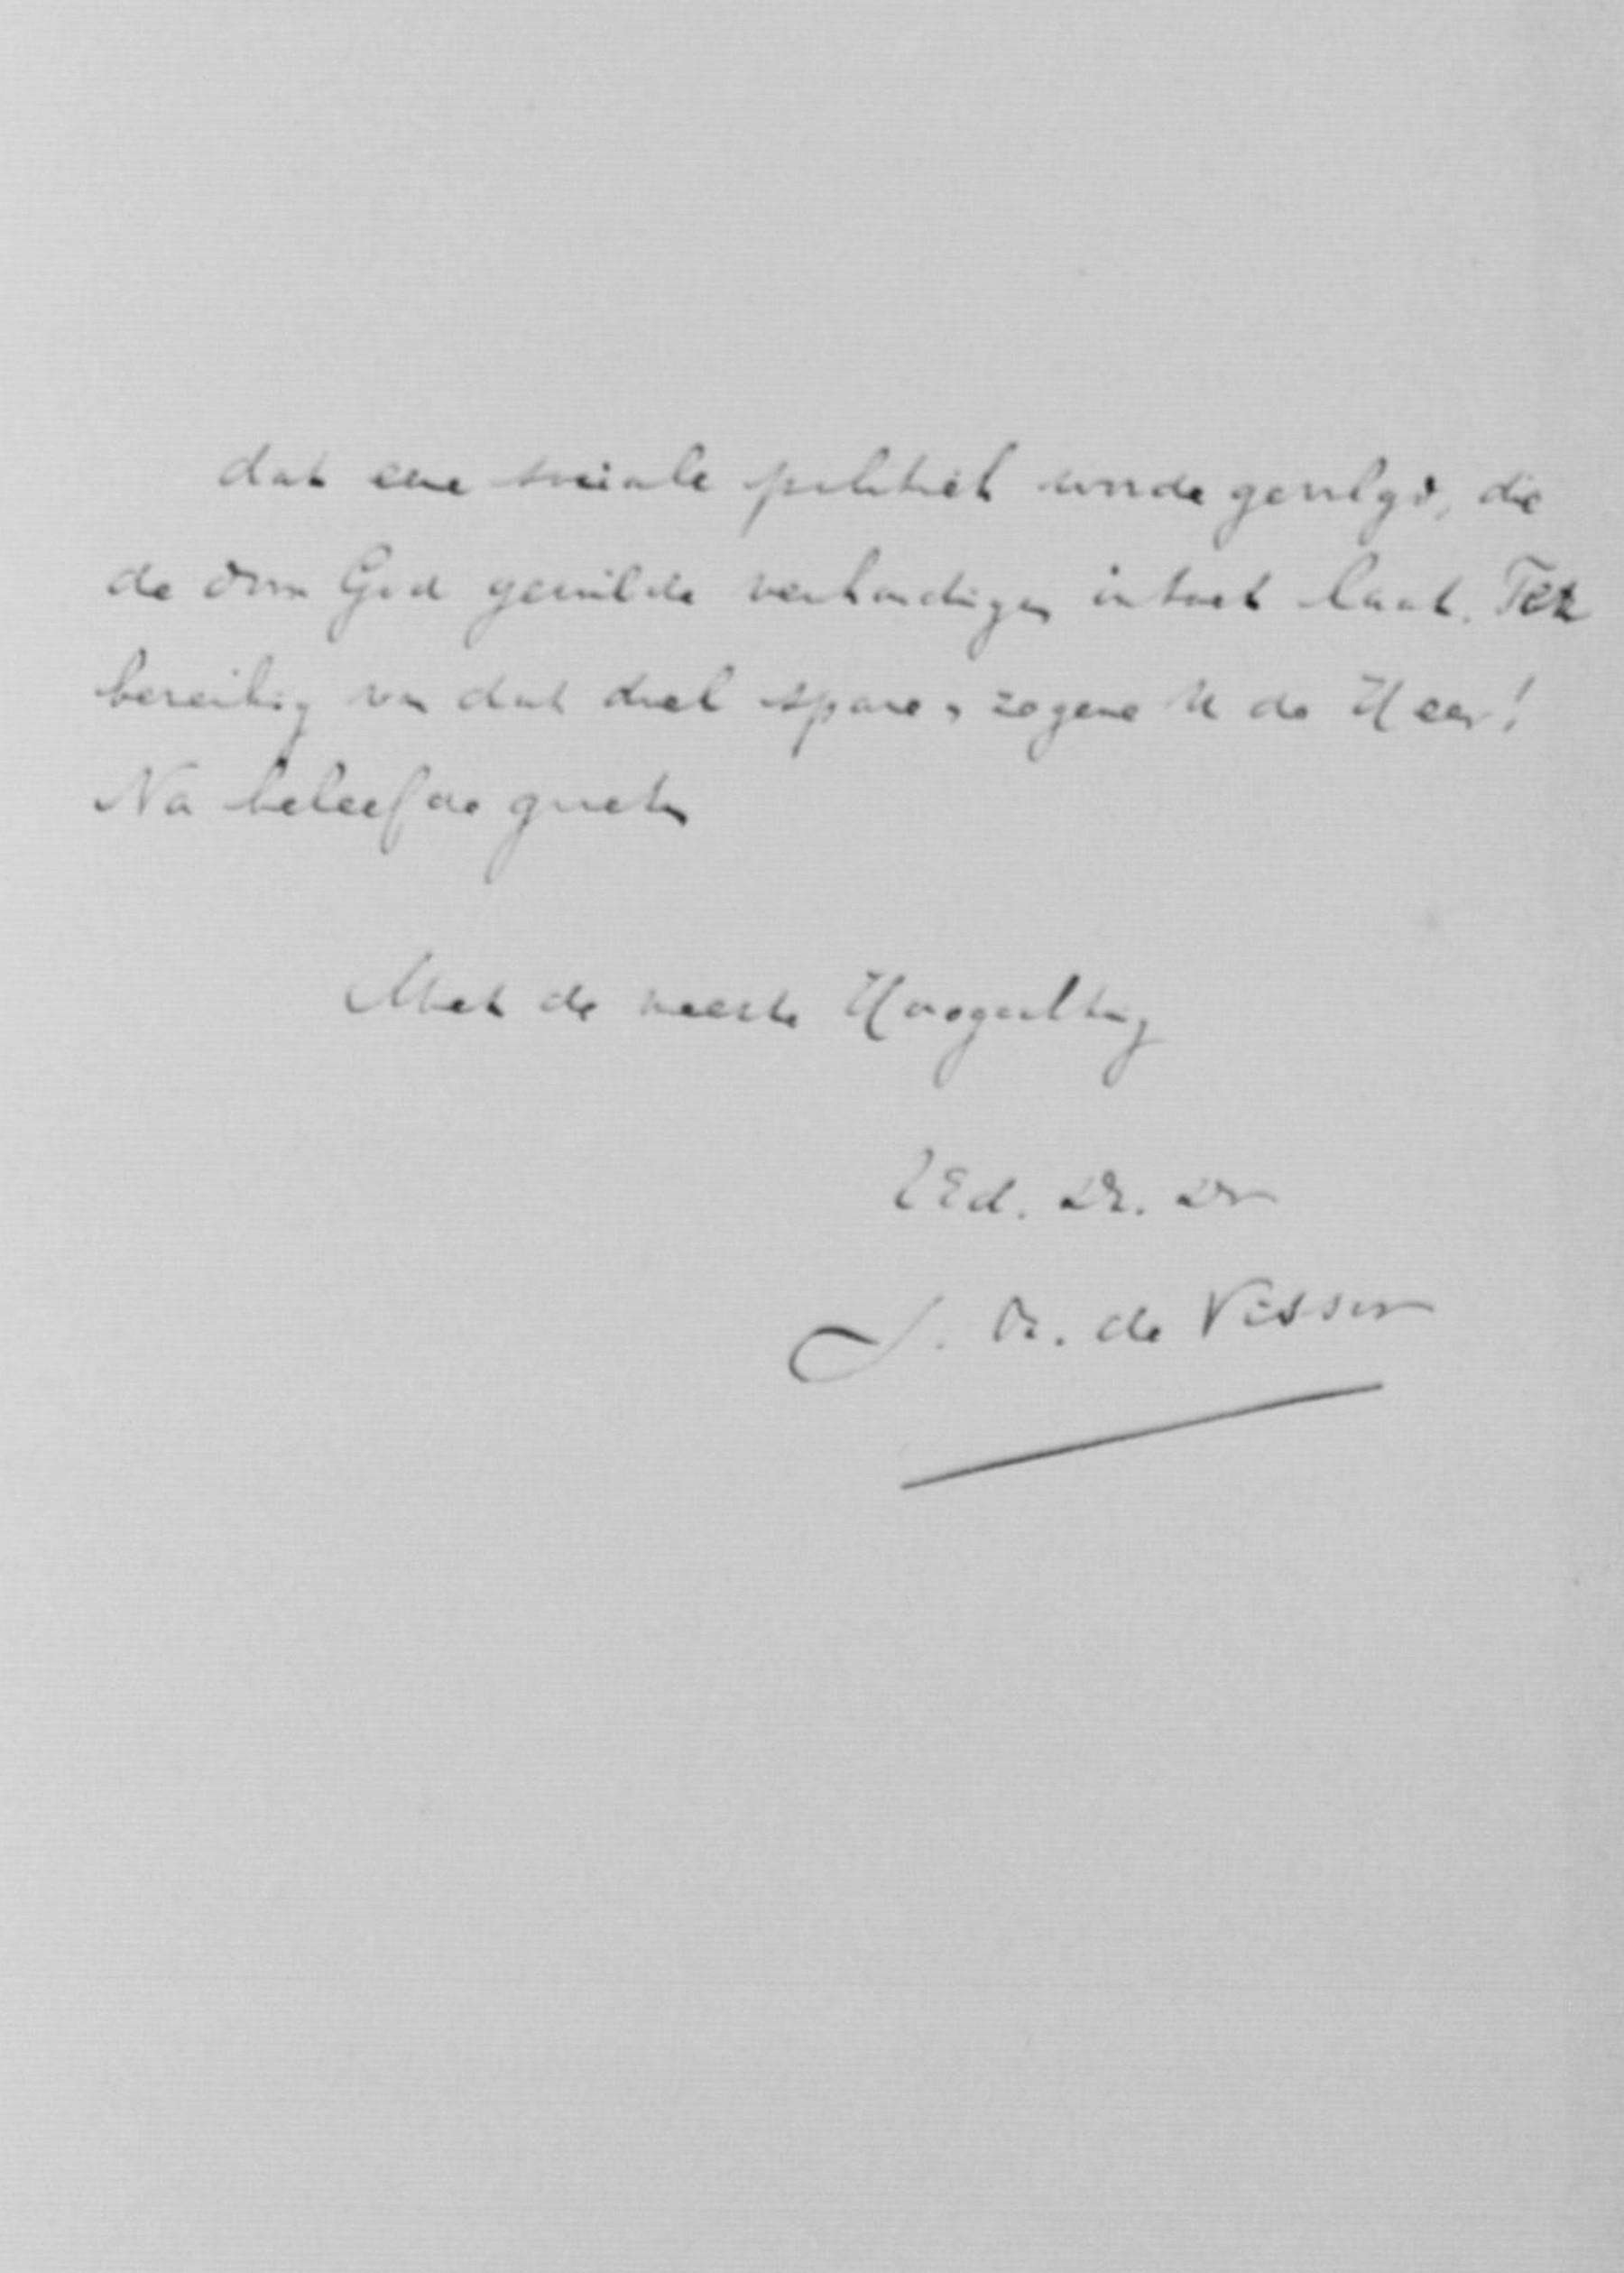 dat eene sociale politiek worde gevolgd, die
de door God gewilde verhoudingen intact laat. Ter
bereiking van dat doel spare en zegene U de Heer!
Na beleefde groeten
Met de meeste Hoogachting
UEd. Dr. Dr
J. Th. de Visser